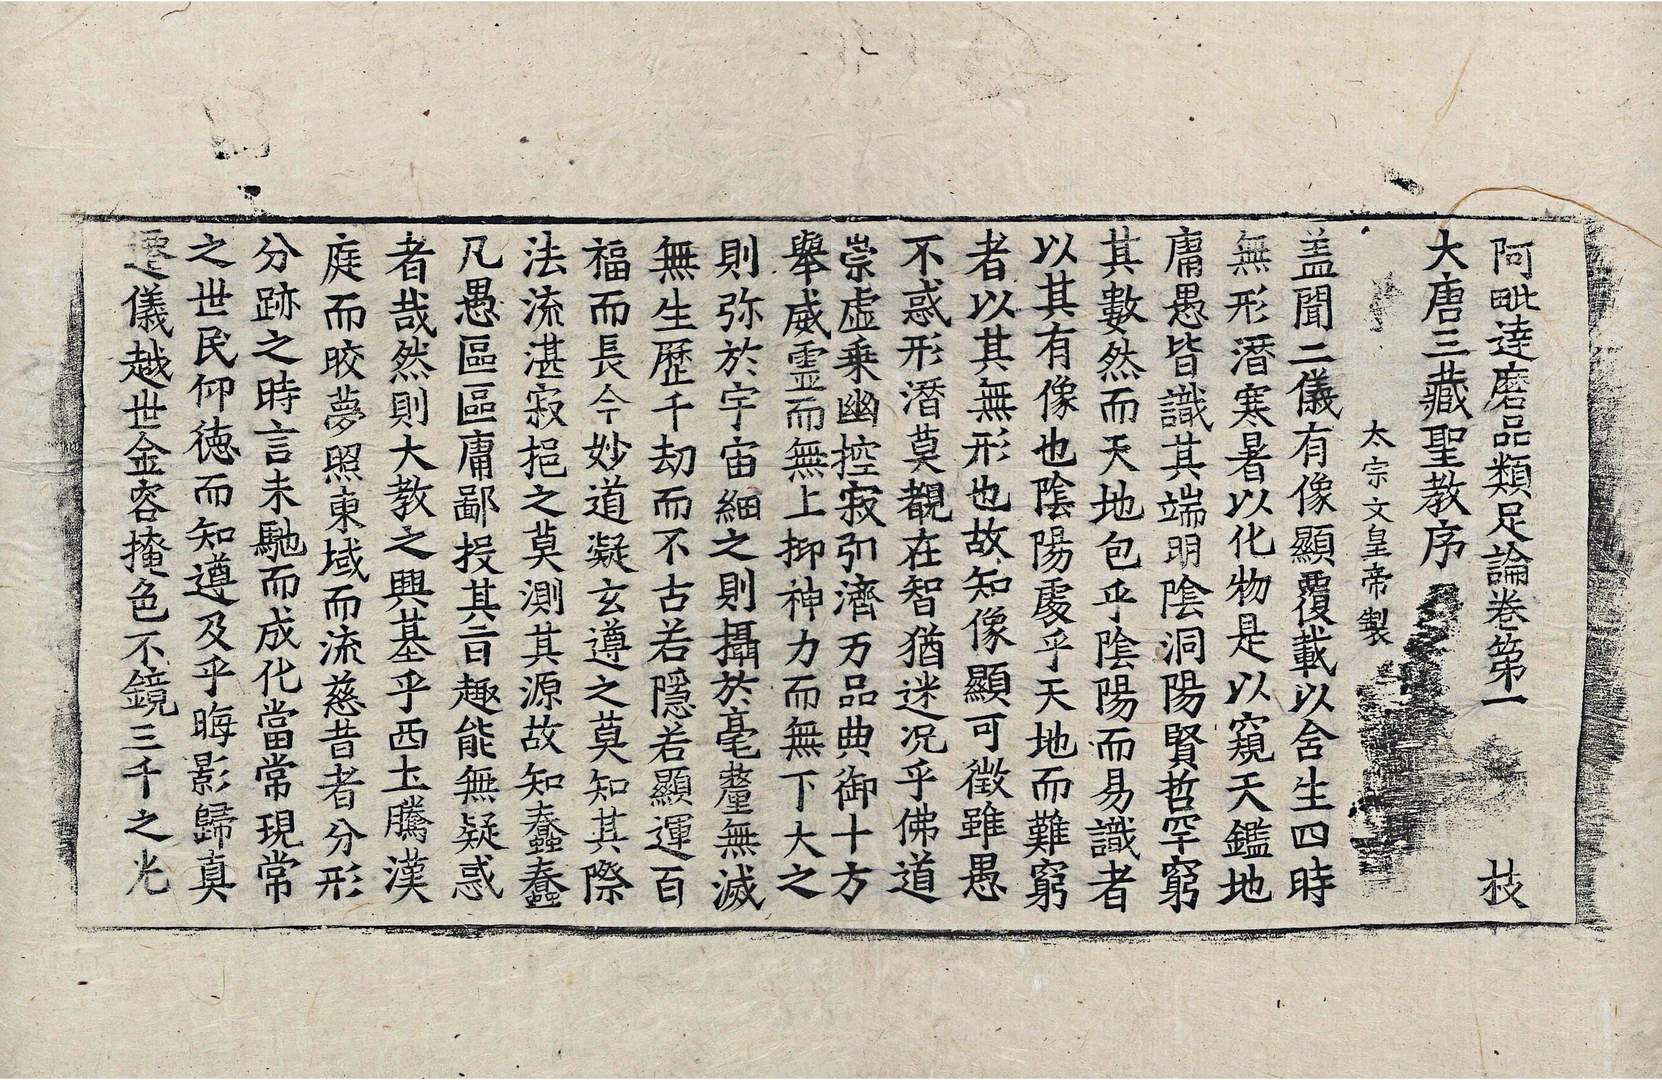 阿毗達磨品類足論卷第一 枝
大唐三藏聖教序
太宗文皇帝製
盖聞二儀有像顯覆載以含生四時
無形潛寒暑以化物是以窺天鑑地
庸愚皆識其端明陰洞陽賢哲罕窮
其數然而天地包乎陰陽而易識者
以其有像也陰陽處乎天地而難窮
者以其無形也故知像顯可徵雖愚
不惑形潛莫覩在智猶迷况乎佛道
崇虛乗幽控寂弘濟万品典御十方
舉威靈而無上抑神力而無下大之
則弥於宇宙細之則攝於毫釐無滅
無生歷千劫而不古若隱若顯運百
福而長今妙道凝玄遵之莫知其際
法流湛寂挹之莫測其源故知蠢蠢
凡愚區區庸鄙投其旨趣能無疑惑
者哉然則大教之興基乎西土騰漢
庭而皎夢照東域而流慈昔者分形
分跡之時言未馳而成化當常現常
之世民仰徳而知遵及乎晦影歸真
遷儀越世金容掩色不鏡三千之光